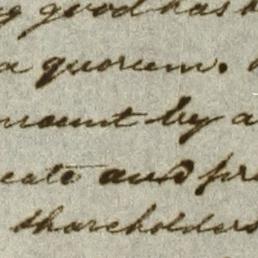 good has
a quorum.
mount by a
and
shareholders